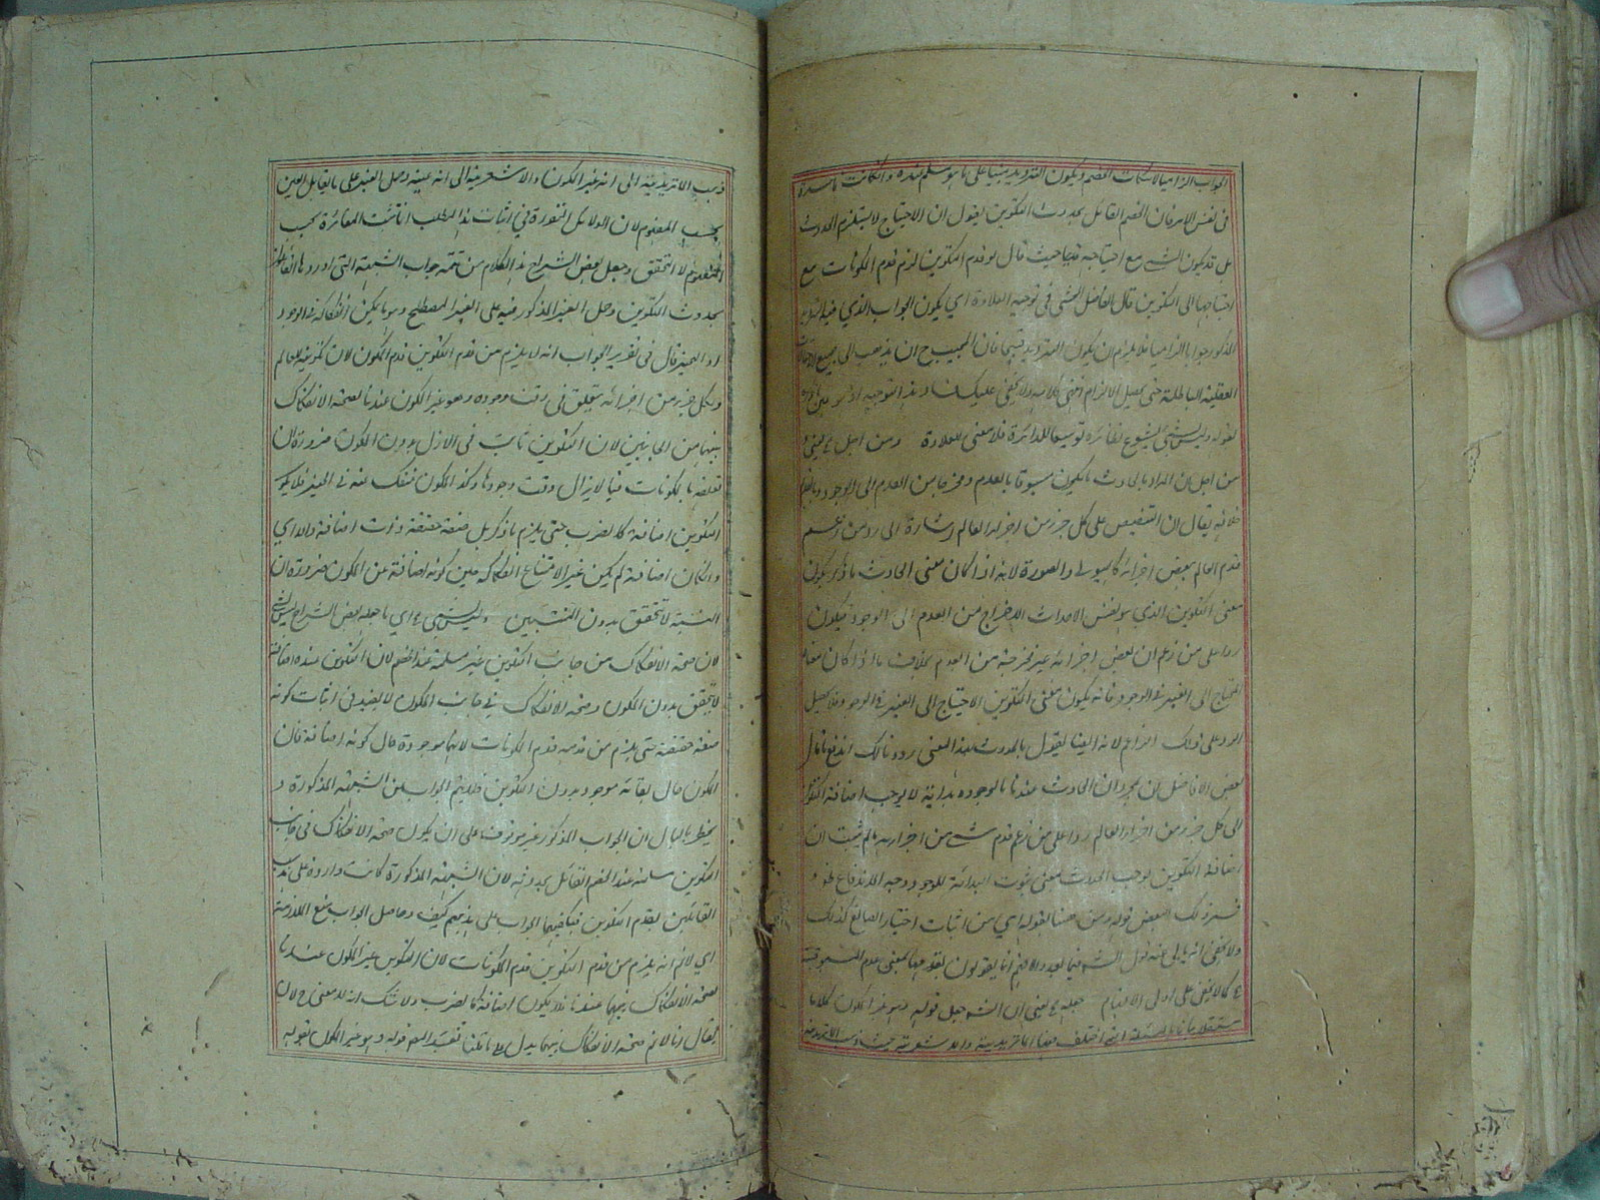 الجواب الزاميا لاسكات الخصم ويكون الترديد مبنيا على ما هو مسلم عنده وان كانت فاسدة
فى نفس الامر فان الخصم القائل بحدوث التكوين يقول ان الاحتياج لا يستلزم الحدوث
بل قد يكون الشئ مع احتياجه قديما حيث قال لو قدم التكوين لزم قدم المكونات مع
احتياجها الى التكوين قال الفاضل المحشى فى توجيه العلاوة اى يكون الجواب الذي فيه
المذكور جوابا الزاميا فلا يلزم ان يكون الترديد قبيحا فان للمجيب ح ان يذهب الى جميع
العقلية الباطلة حتى يحصل الالزام انتهى كلامه ولا يخفى عليك فساد هذا التوجيه
لقوله وليس بشئ لشيوع نظائره توسيعا للدائرة فلا معنى للعلاوة ومن اجل يعنى
من اجل ان المراد بالحادث ما يكون مسبوقا بالعدم ومخرجا من العدم الى الوجود
خلافه يقال ان التنصيص على كل جزء من اجزاء العالم اشارة الى رد من زعم
قدم العالم ببعض اجزائه كالهيولى والصورة لانه اذا كان معنى الحادث ما ذكر يكون
معنى التكوين الذي هو نفس الاحداث الاخراج من العدم الى الوجود فيكون
ردا على من زعم ان بعض اجزائه غير مخرجة من العدم بخلاف ما اذا كان معناه
المحتاج الى الغير فى الوجود فانه يكون معنى التكوين الاحتياج الى الغير فى الوجود فلا يحصل
الرد على ذلك الزاعم لانه ايضا يقول بالحدوث بهذا المعنى وبذلك اندفع ما قال
بعض الافاضل ان مجرد ان الحادث عندنا ما لوجوده بداية لا يوجب اضافة التكوين
الى كل جزء من اجزاء العالم ردا على من زعم قدم شئ من اجزائه ما لم يثبت ان
اضافة التكوين يوجب الحدوث بمعنى ثبوت البداية للوجود ووجه الاندفاع ظاهر
فسر ذلك البعض قوله ومن ههنا لقوله اى من اثبات اختيار الصانع كذلك
ولا يخفى انه يأبى عنه قول الشه فيما بعد والا فهم انما يقولون بقدمها بمعنى عدم المسبوقية
كما لا يخفى على اولى الافهام جعله يعنى ان الشه جعل قوله وهو غير المكون كلاما
مستقلا بيانا لمسئلة اختلف فيها الماتريدية والاشعرية
ذهب الماتريدية الى انه غير المكون والاشعرية الى انه عينه وحمل الغير على ما يقابل العين
بحسب المفهوم لان الدلائل المذكورة فى اثبات هذا المطلب انما تثبت المغائرة بحسب
المفهوم لا التحقق وجعل بعض الشراح هذا الكلام من تتمة جواب الشبهة التى اوردها القائلون
بحدوث التكوين وحمل الغير المذكور فيه على الغير المصطلح وهو ما يمكن انفكاكه فى الوجود
او الحيز قال فى تقرير الجواب انه لا يلزم من قدم التكوين قدم المكون لان تكوينه للعالم
ولكل جزء من اجزائه يتعلق فى وقت وجوده وهو غير المكون عندنا لصحة الانفكاك
بينهما من الجانبين لان التكوين ثابت فى الازل بدون المكون ضرورة ان
تعلقه بالمكونات فيما لا يزال وقت وجودها وكذا المكون منفك عنه فى الحيز فلا يكون
التكوين اضافة كالضرب حتى يلزم ما ذكر بل صفة حقيقة ذات اضافة والا اى
وان كان اضافة لم يكن غيرا لامتناع انفكاكه حين كونه اضافة عن المكون ضرورة ان
النسبة لا تتحقق بدون المنتسبين وليس بشئ اى ما جعله بعض الشراح ليس بشئ
لان صحة الانفكاك من جانب التكوين غير مسلمة عند الخصم لان التكوين عنده اضافة
لا تتحقق بدون المكون وصحة الانفكاك فى جانب المكون لا يفيد فى اثبات كونه
صفة حقيقة حتى يلزم من قدمه قدم المكونات لانها موجودة حال كونه اضافة فان
المكون حال بقائه موجود بدون التكوين فلا يتم الجواب من الشبهة المذكورة و
يخطر بالبال ان الجواب المذكور غير موقوف على ان يكون صحة الانفكاك فى جانب
التكوين مسلمة عند الخصم القائل بحدوثه لان الشبهة المذكورة كانت واردة على مذهب
القائلين بقدم التكوين فيكفينا الجواب على مذهبهم كيف وحاصل الجواب منع الملازمة
اى لا نم انه يلزم من قدم التكوين قدم المكونات لان التكوين غير المكون عندنا
لصحة الانفكاك بينهما عندنا فلا يكون اضافة كالضرب ولا شك انه لا معنى ح لان
يقال انا لا نم صحة الانفكاك بينهما يدل على ما قلنا تقييد المصنف قوله وهو غير المكون بقوله